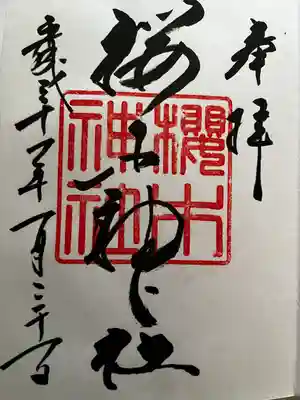 奉拝
櫻木神社
櫻木
神社
平成三十一年一月二十日